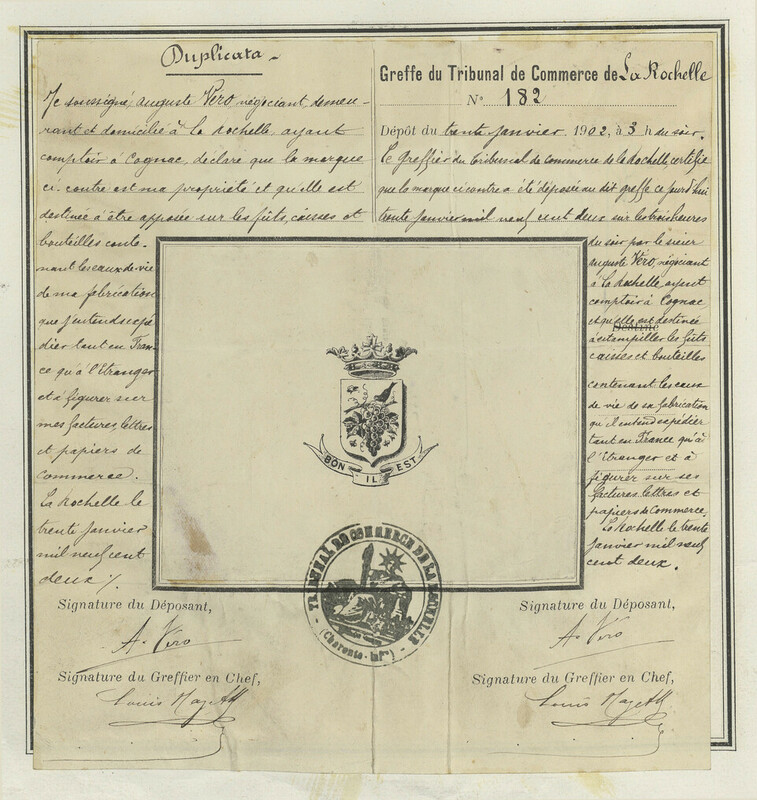 Duplicata
Je soussigné, Auguste Véro, négociant demeu-
rant et domicilié à La Rochelle, ayant
comptoir à Cognac, déclare que la marque
ci-contre est ma propriété et qu'elle est
destinée à être apposée sur les fûts, caisses et
bouteilles conte-
nant les eaux-de-vie
de ma fabrication
que j'entends expé
dier tant en Fran-
ce qu'à l'Etranger
et à figurer sur
mes factures, lettres
et papiers de
commerce.
La Rochelle le
trente Janvier
mil neuf cent
deux
Signature du Déposant,
A. Véro
Signature du Greffier en Chef,
Louis
Greffe du Tribunal de Commerce de La Rochelle
N° 182
Dépôt du trente Janvier 1902, à 3 h du soir.
Le Greffier du Tribunal de Commerce de La Rochelle, certifie
que la marque ci contre a été déposée au dit greffe ce jourd'hui
trente Janvier mil neuf cent deux sur les trois heures
du soir par le sieur
Auguste Véro, négociant
à La Rochelle, ayant
comptoir à Cognac
et qu'elle est destinée
à estampiller les fûts
caisses et bouteilles
contenant les eaux
de vie de sa fabrication
qu'il entend expédier
tant en France qu'à
l'Etranger et à
figurer sur ses
factures, lettres et
papiers de Commerce.
La Rochelle le trente
Janvier mil neuf
cent deux.
Signature du Déposant,
A. Véro
Signature du Greffier en Chef,
Louis
BON IL EST
TRIBUNAL DE COMMERCE DE LA ROCHELLE
(Charente-Infre)